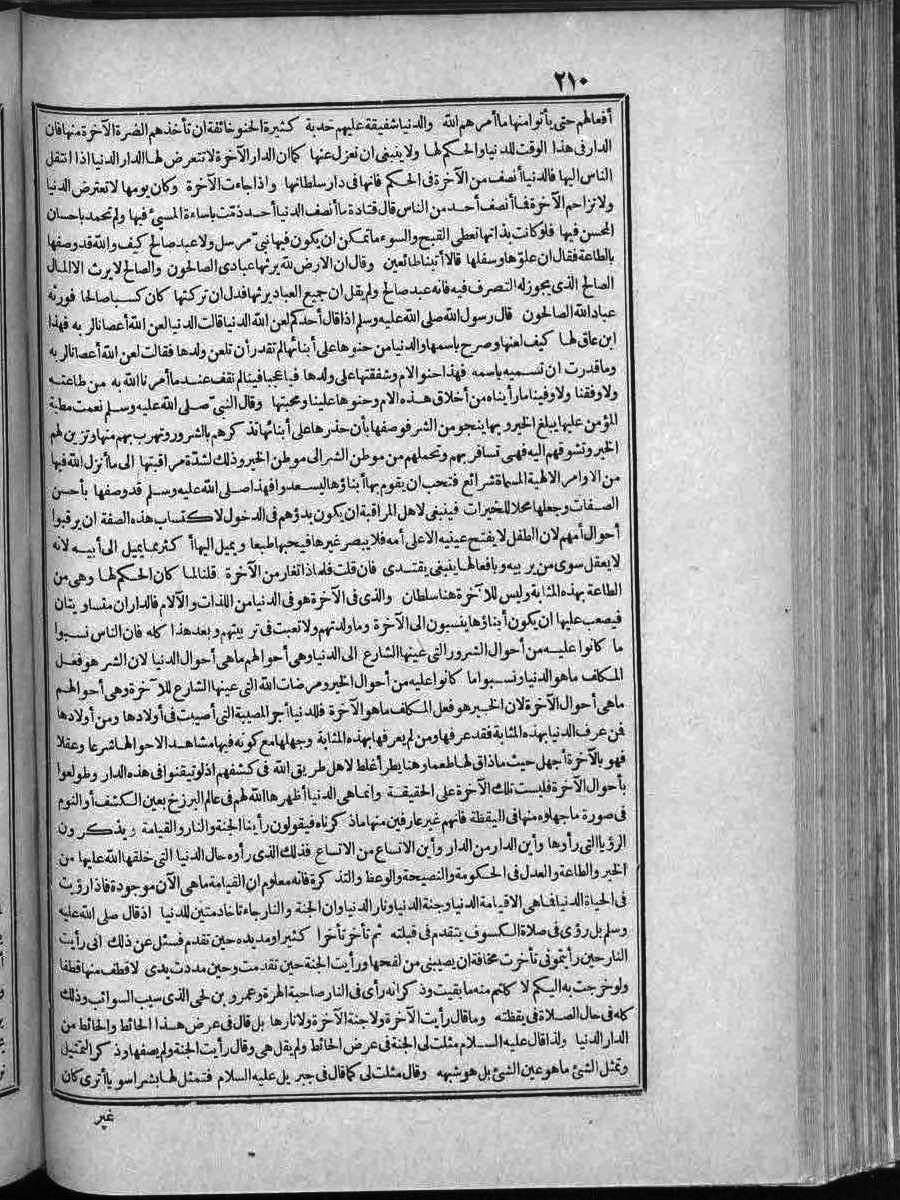 ٢١٠
أفعالهم حتى يأتوا منها ما أمرهم الله والدنيا شفيقة عليهم حدبة كثيرة الحنو خائفة ان تأخذهم الضرة الآخرة منها فان
الدار فى هذا الوقت للدنيا والحكم لها ولا ينبغى ان نعزل عنها كما ان الدار الآخرة لا تتعرض لها الدار الدنيا اذا انتقل
الناس اليها فالدنيا أنصف من الآخرة فى الحكم فانها فى دار سلطانها واذا جاءت الآخرة وكان يومها لا تعترض الدنيا
ولا تزاحم الآخرة فما أنصف أحد من الناس قال قتادة ما أنصف الدنيا أحد ذمّت باساءة المسىء فيها ولم تحمد باحسان
المحسن فيها فلو كانت بذاتها تعطى القبح والسوء ما تمكن ان يكون فيها نبىّ مرسل ولا عبد صالح كيف والله قد وصفها
بالطاعة فقال ان علوّها وسفلها قالا أتينا طائعين وقال ان الارض لله يرثها عبادى الصالحون والصالح لا يرث الا المال
الصالح الذى يجوز له التصرف فيه فانه عبد صالح ولم يقل ان جميع العباد يرثها فدل ان تركتها كان كسبا صالحا فورثه
عباد الله الصالحون قال رسول الله صلى الله عليه وسلم اذا قال أحدكم لعن الله الدنيا قالت الدنيا لعن الله أعصانا لربه فهذا
ابن عاق لها كيف لعنها وصرح باسمها والدنيا من حنوها على أبنائها لم تقدر أن تلعن ولدها فقالت لعن الله أعصانا لربه
وما قدرت ان تسميه باسمه فهذا حنو الام وشفقتها على ولدها فيا عجبا فينا لم نقف عند ما أمرنا الله به من طاعته
ولا وفقنا ولا وفينا ما رأيناه من أخلاق هذه الام وحنوها علينا ومحبتها وقال النبىّ صلى الله عليه وسلم نعمت مطية
المؤمن عليها يبلغ الخير وبها ينجو من الشر فوصفها بأن حذرها على أبنائها تذكرهم بالشرور وتهرب بهم منها وتزين لهم
الخير وتشوقهم اليه فهى تسافر بهم وتحملهم من موطن الشر الى موطن الخير وذلك لشدّة مراقبتها الى ما أنزل الله فيها
من الاوامر الالهية المسماة شرائع فتحب ان يقوم بها أبناؤها ليسعدوا فهذا صلى الله عليه وسلم قد وصفها بأحسن
الصفات وجعلها محلا للخيرات فينبغى لاهل المراقبة ان يكون بدؤهم فى الدخول لاكتساب هذه الصفة ان يرقبوا
أحوال أمهم لان الطفل لا يفتح عينيه الا على أمه فلا يبصر غيرها فيحبها طبعا ويميل اليها أكثر مما يميل الى أبيه لانه
لا يعقل سوى من يربيه وبأفعالها ينبغى يقتدى فان قلت فلماذا تغار من الآخرة قلنا لما كان الحكم لها وهى من
الطاعة بهذه المثابة وليس للآخرة هنا سلطان والذى فى الآخرة هو فى الدنيا من اللذات والآلام فالداران متساويتان
فيصعب عليها ان يكون أبناؤها ينسبون الى الآخرة وما ولدتهم ولا تعبت فى تربيتهم وبعد هذا كله فان الناس نسبوا
ما كانوا عليه من أحوال الشرور التى عينها الشارع الى الدنيا وهى أحوالهم ما هى أحوال الدنيا لان الشر هو فعل
المكلف ما هو الدنيا ونسبوا ما كانوا عليه من أحوال الخير ومرضات الله التى عينها الشارع للآخرة وهى أحوالهم
ما هى أحوال الآخرة لان الخير هو فعل المكلف ما هو الآخرة فللدنيا أجر المصيبة التى أصيبت فى أولادها ومن أولادها
فن عرف الدنيا بهذه المثابة فقد عرفها ومن لم يعرفها بهذه المثابة وجهلها مع كونه فيها مشاهدا لاحوالها شرعا وعقلا
فهو بالآخرة أجهل حيث ما ذاق لها طعما وهنا يطرأ غلط لاهل طريق الله فى كشفهم اذ لو تيقنوا فى هذه الدار وطولعوا
بأحوال الآخرة فليست تلك الآخرة على الحقيقة وانما هى الدنيا أظهرها الله لهم فى عالم البرزخ بعين الكشف أو النوم
فى صورة ما جهلوه منها فى اليقظة فانهم غير عارفين منها ما ذكرناه فيقولون رأينا الجنة والنار والقيامة ويذكرون
الرؤيا التى رأوها وأين الدار من الدار وأين الاتساع من الاتساع فذلك الذى رأوه حال الدنيا التى خلقها الله عليها من
الخير والطاعة والعدل فى الحكومة والنصيحة والوعظ والتذكرة فانه معلوم ان القيامة ما هى الآن موجودة فاذا رؤيت
فى الحياة الدنيا فما هى الا قيامة الدنيا وجنة الدنيا ونار الدنيا وان الجنة والنار جاءتا خادمتين للدنيا اذ قال صلى الله عليه
وسلم بل رؤى فى صلاة الكسوف يتقدم فى قبلته ثم تأخر تأخرا كثيرا ومد يده حين تقدم فسئل عن ذلك انى رأيت
النار حين رأيتمونى تأخرت مخافة ان يصيبنى من لفحها ورأيت الجنة حين تقدمت وحين مددت يدى لاقطف منها قطفا
ولو خرجت به اليكم لا كلتم منه ما بقيت وذكر انه رأى فى النار صاحبة الهرة وعمرو بن لحى الذى سيب السوائب وذلك
كله فى حال الصلاة فى يقظته وما قال رأيت الآخرة ولا جنة الآخرة ولا نارها بل قال فى عرض هذا الحائط والحائط من
الدار الدنيا ولذا قال عليه السلام مثلت لى الجنة فى عرض الحائط ولم يقل هى وقال رأيت الجنة ولم يصفها وذكر التمثيل
وتمثل الشئ ما هو عين الشئ بل هو شبهه وقال مثلت لى كما قال فى جبريل عليه السلام فتمثل لها بشرا سويا أترى كان
غير